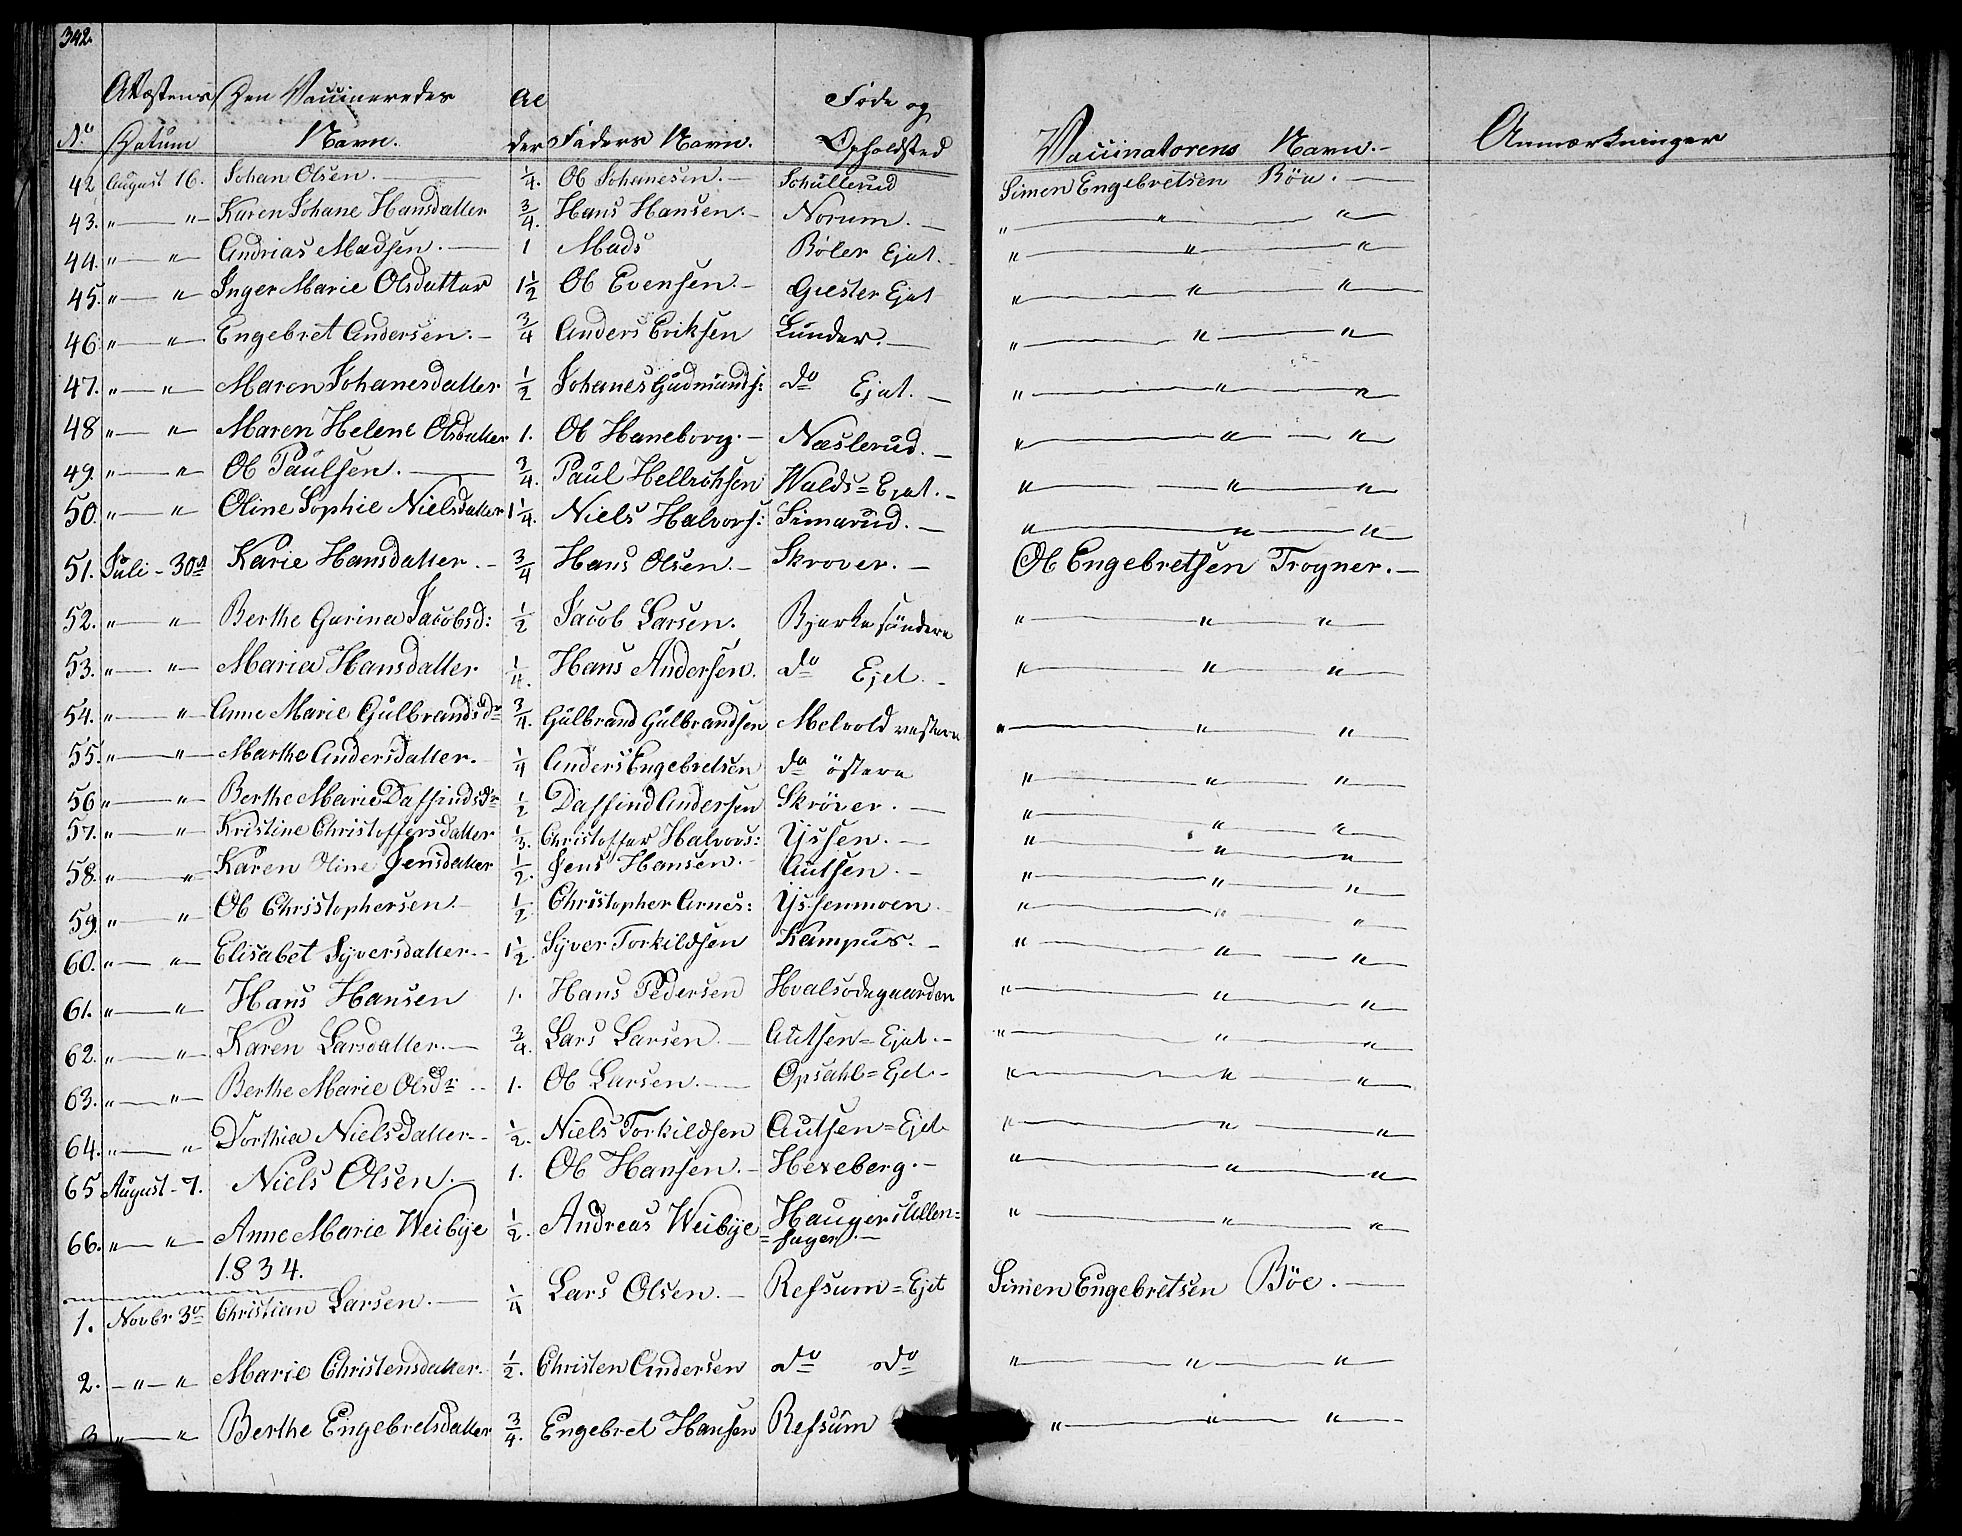 342.
Attestens Den Vaccineredes Al Føde og
No Datum Navn. der Faders Navn. Opholdsted Vaccinatorens Navn.- Anmærkninger
42 August 16. Johan Olsen. 1/4. Ole Johanesen.- Schullerud Simen Engebretsen Böe.
43. " — " Karen Johane Hansdatter 3/4. Hans Hansen.- Norum. - " — " — "
44. " — " Andrias Madsen. 1 Mads Bøler Ejet. - " — " — "
45. " — " Inger Marie Olsdatter 1 1/2 Ole Evensen.- Giester Ejet " — " — "
46. " — " Engebret Andersen.- 3/4 Anders Eriksen Lunder. " — " — "
47. " — " Maren Johanesdatter 1/2 Johanes Gudmunds: do Ejet. - " — " — "
48 " — " Maren Helene Olsdatter 1. Ole Haneborg.- Næslerud. - " — " — "
49. " — " Ole Paulsen. 3/4. Paul Helleriksen Walds=Ejet. - " — " — "
50. " — " Oline Sophie Nielsdatter 1 1/4. Niels Halvors: Simarud. - " — " — "
51. Juli - 30te Karie Hansdatter.- 3/4 Hans Olsen.- Skrover. - Ole Engebretsen Trogner.-
52. " — " Berthe Garina Jacobsd: 1/2 Jacob Larsen. Bjerke søndere " — " — "
53. " — " Maria Hansdatter 1/4. Hans Andersen. do Ejet. - " — " — "
54. " — " Anne Marie Gulbrandsdr 3/4. Gulbrand Gulbrandsen Melvold vestere " — " — "
55. " — " Marthe Andersdatter. 1/4 Anders Engebretsen do östere " — " — "
56 " — " Berthe Marie Daffindsdr 1/2 Daffind Andersen Skröver. - " — " — "
57. " — " Kristine Christoffersdatter 1/3. Christoffer Halvors: Ijssen. - " — " — "
58. " — " Karen Oline Jensdatter 1/2. Jens Hansen.- Autsen. - " — " — "
59. " — " Ole Christophersen.- 1/2 Christopher Arnes: Ijssenmoen. " — " — "
60. " — " Elisabet Syversdatter.- 1 1/2. Syver Torkildsen Kampus. - " — " — "
61. " — " Hans Hansen 1. Hans Pedersen Hvalsødegaarden " — " — "
62. " — " Karen Larsdatter. 3/4. Lars Larsen. Autsen=Ejet.- " — " — "
63. " — " Berthe Marie Olsdr. - 1. Ole Larsen. Opsahl=Ejet- " — " — "
64. " — " Dorthia Nielsdatter.- 1/2. Niels Torkildsen Autsen=Ejet- " — " — "
65 August-7. Niels Olsen. 1. Ole Hansen.- Hexeberg.- " — " — "
66. " — " Anne Marie Weibye 1/2. Andreas Weibye Hauger i Ullen= " — " — "
=sager.-
1834.
1. Novbr 3die Christian Larsen. 1/4 Lars Olsen.- Refsum=Ejet Simen Engebretsen Böe.
2. - " - " Marie Christensdatter. 1/2. Christen Andersen do do " — " — "
3 " — " Berthe Engebretsdatter 3/4. Engebret Hansen Refsum " — " — "